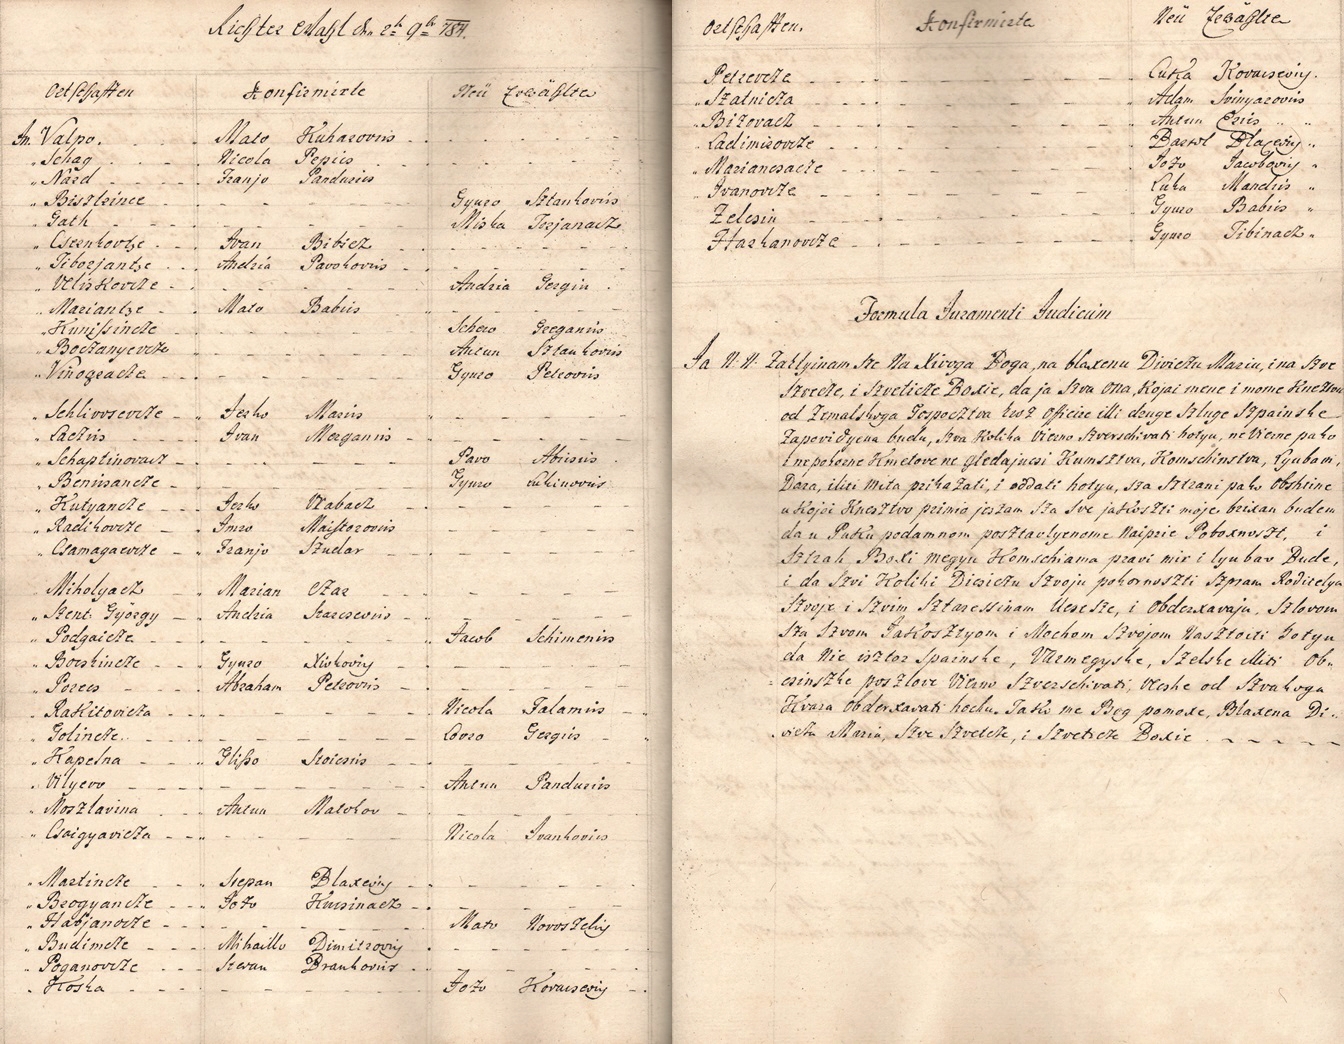 Richter Wahl den 2t 9br 784.
Ortschaften Konfirmirte Neü Erwählte
In Valpo. Mato Kuharoviis
" Schag Nicola Pepics
" Nard Franjo Panduris
" Bisztrince Gyuro Sztankoviis
" Gath Miska Terjanacz
" Csernkovtze Ivan Bibicz
" Tiborjantze Andria Pavokoviis
" Veliskovcze Andria Gergin
" Mariantze Mato Babiis
" Kunissincze Schero Greganiis
" Boczanyevcze Antun Sztankoviis
" Vinogracze Gyuro Petroviis
" Schlivosevcze Jerko Mariis
" Lacziis Ivan Merganiis
" Schaptinovacz Pavo Abiniis
" Benisancze Gyuro Lukinoviis
" Kutyancze Jerko Vrabacz
" Radikovcze Imro Maistoroviis
" Csamagaevcze Franjo Studar
" Miholyacz Marian Czar
" Szent György Andria Starcseviis
" Podgaicze Jacob Schimeniis
" Borskincze Gyuro Xivkoviy
" Poreis Abraham Petroviis
" Rakitovicza Nicola Falamiis
" Golincze Lovro Gergiis
" Kapelna Glisso Stoicsiis
" Vilyevo Antun Panduriis
" Moszlavina Antun Matokov
" Csaigyavicza Nicola Ivankoviis
" Martincze Stepan Blaxeviy
" Brogyancze Jozo Kursinacz
" Harjanovcze Mato Novoszeliy
" Budimcze Mihaillo Dimitroviy
" Poganovcze Stevan Brankoviis
" Koska Jozo Kovacseviy
Ortschaften. Konfirmirte Neü Erwählte
Petrevcze Luka Kovacseviy.
" Szatnicza Adam Svinyaroviis
" Bizovacz Antun Eriis
" Ladimirovcze Bartol Blaxeviy
" Mariancsacze Jozo Jacoboviy
" Ivanovcze Luka Mandiis
" Zelcsin Gyuro Babiis
" Harkanovcze Gyuro Tibinacz
Formula Juramenti Judicum
Ja N: N: Zaklyinam sze Na Xivoga Boga, na blaxenu Diviczu Mariu, i na Sve
Szvecze, i Szveticze Boxie, da ja Sva Ona, Kojai mene i mome Knextvu
od Zemalskoga Gospocztva ... Officire illi druge Szluge Szpainske
Zapovidyena budu, Sva Kolika Virno Szverschivati hotyu, ne Virne pako
i nepokorne Kmetove ne gledajucsi Kumsztva, Komschinstva, Lyubavi,
Dara, iliti Mita prikazati, i oddati hotyu, sza Sztrani pako Obshtine
u Kojoi Knesztvo primio jeszam Sza Sve jakoszti moje brixan budem
da u Puku podamnom posztavlyenome Naiprie Poboxnoszt, i
Sztrah Boxi megyu Komschiama pravi mir i lyubav Bude,
i da Szvi Koliki Diviczu Szvoju pokornoszti Szpram Roditelya
Szvoje i Szvim Sztaressinam Ucsesze, i Obderxavaju, Szlovom
Sza Szvom Jakosztyom i Mochom Szvojom Nasztoiti hotyu
da Nie isztor Spainske, Varmegyske, Szelske illiti Ob-
= csinszke poszlove Virno Szverschivati, Ueshe od Szvakoga
Kvara Obderxavati hochu. Tako me Bog pomoxe, Blaxena Di-
vicza Maria, Sve Szvetcze, i Szveticze Boxie